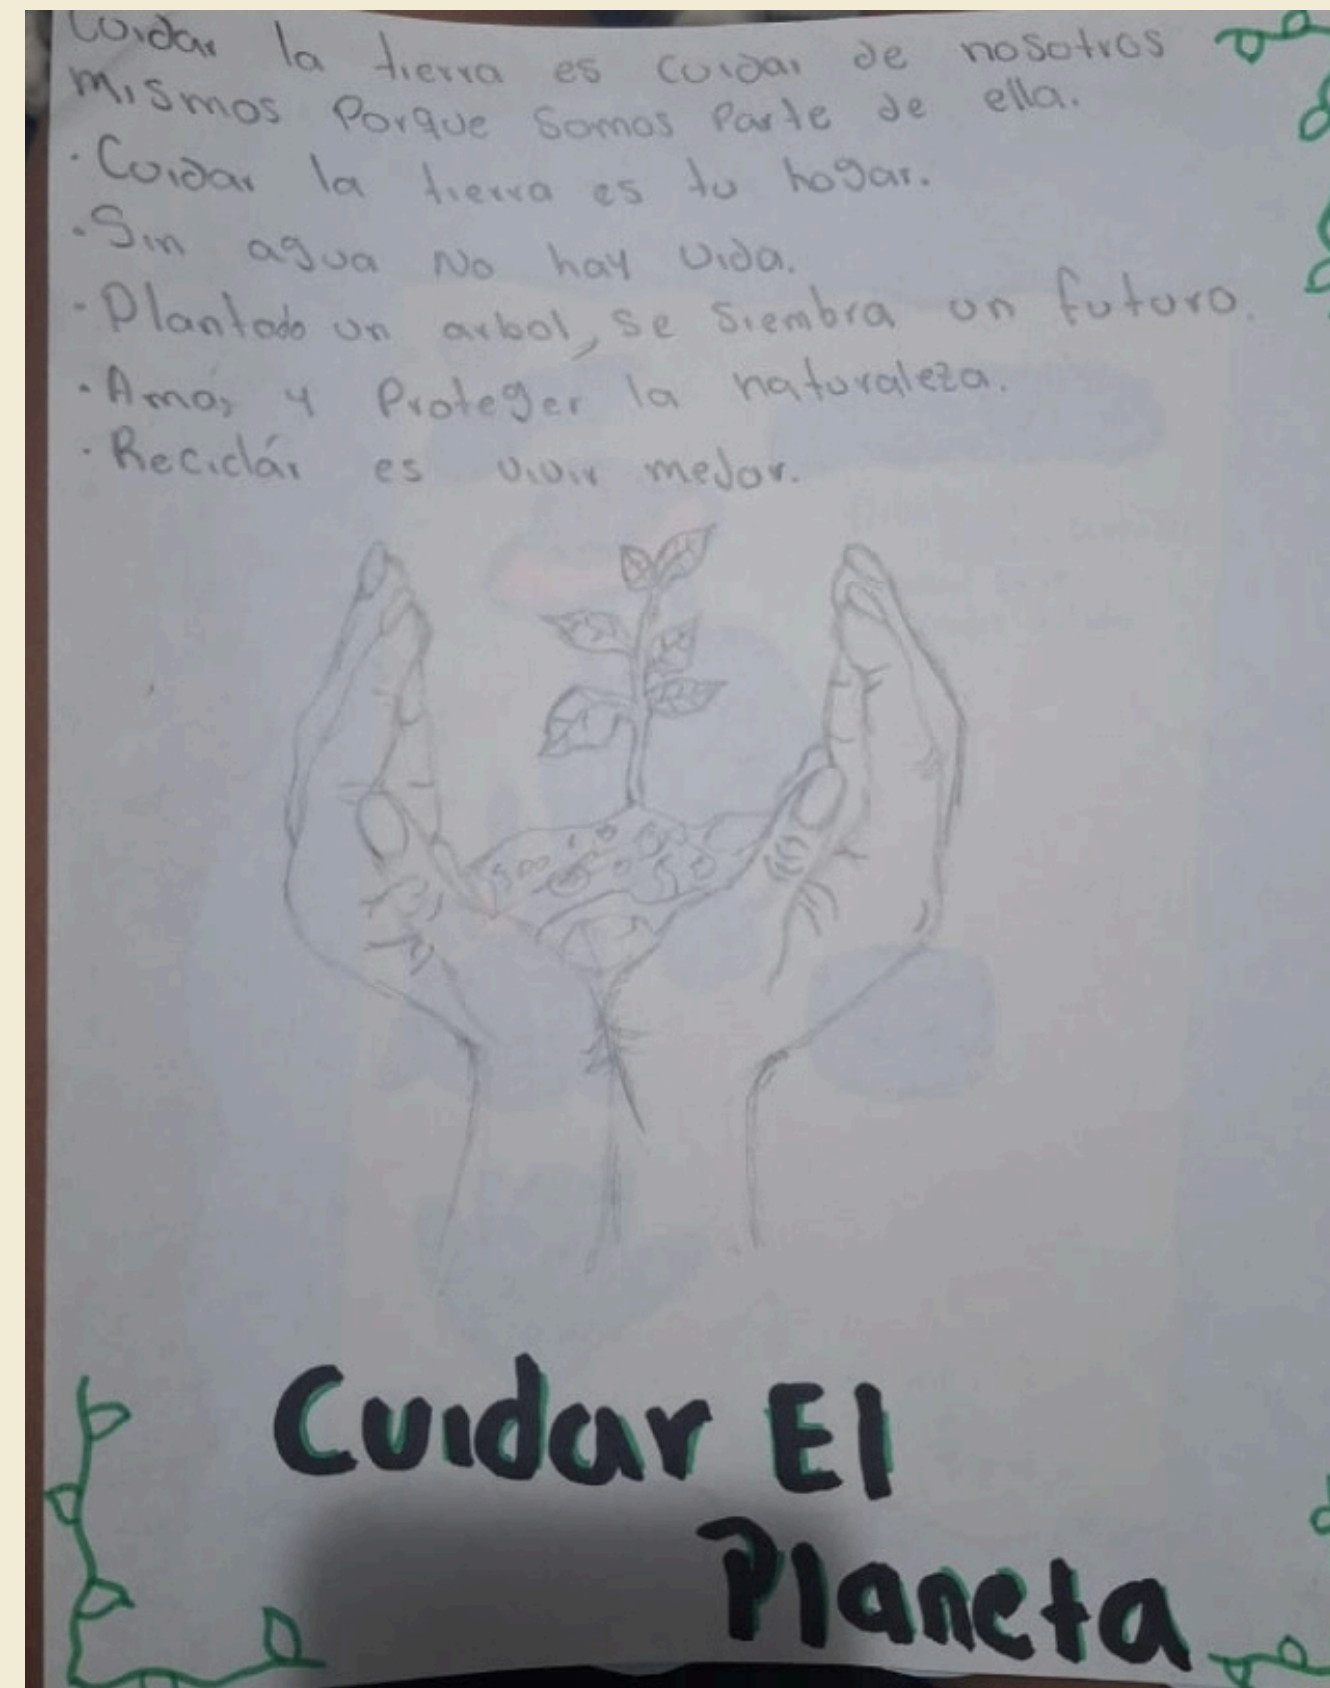 Cuidar la tierra es cuidar de nosotros
mismos Porque Somos Parte de ella.
· Cuidar la tierra es tu hogar.
· Sin agua No hay vida.
- Plantado un arbol, se siembra un futuro.
· Amar y Proteger la naturaleza.
· Reciclár es vivir mejor.
Cuidar El
Planeta